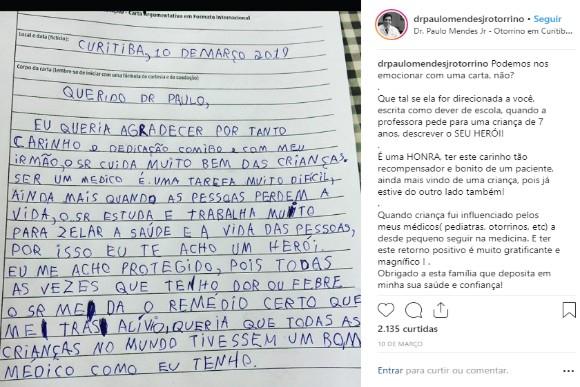 Carta Argumentativa em Formato Internacional
Local e data (fictícios):
CURITIBA, 10 DE MARÇO 2019
Corpo da carta (lembre-se de iniciar com uma fórmula de cortesia e de saudação):
QUERIDO DR PAULO,
EU QUERIA AGRADECER POR TANTO
CARINHO E DEDICAÇÃO COMIGO E COM MEU
IRMÃO, O SR CUIDA MUITO BEM DAS CRIANÇAS.
SER UM MEDICO É UMA TAREFA MUITO DIFICIL,
AINDA MAIS QUANDO AS PESSOAS PERDEM A
VIDA, O SR ESTUDA E TRABALHA MUITO
PARA ZELAR A SAÚDE E A VIDA DAS PESSOAS,
POR ISSO EU TE ACHO UM HEROI.
EU ME ACHO PROTEGIDO, POIS TODAS
AS VEZES QUE TENHO DOR OU FEBRE
O SR ME DA O REMÉDIO CERTO QUE
ME TRAS ALÍVIO, QUERIA QUE TODAS AS
CRIANÇAS NO MUNDO TIVESSEM UM BOM
MÉDICO COMO EU TENHO.
drpaulomendesjrotorrino • Seguir
Dr. Paulo Mendes Jr - Otorrino em Curitib...
drpaulomendesjrotorrino Podemos nos
emocionar com uma carta, não?
.
Que tal se ela for direcionada a você,
escrita como dever de escola, quando a
professora pede para uma criança de 7
anos, descrever o SEU HERÓI!
.
É uma HONRA, ter este carinho tão
recompensador e bonito de um paciente,
ainda mais vindo de uma criança, pois já
estive do outro lado também!
.
Quando criança fui influenciado pelos
meus médicos( pediatras, otorrinos, etc) a
desde pequeno seguir na medicina. E ter
este retorno positivo é muito gratificante e
magnífico ! .
Obrigado a esta família que deposita em
minha sua saúde e confiança!
2.135 curtidas
10 DE MARÇO
Entrar para curtir ou comentar.